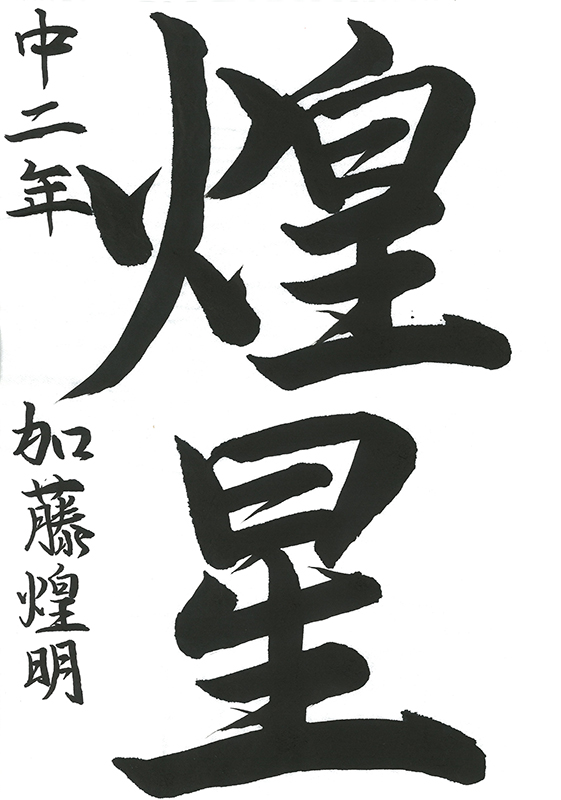 煌星
中二年
加藤煌明